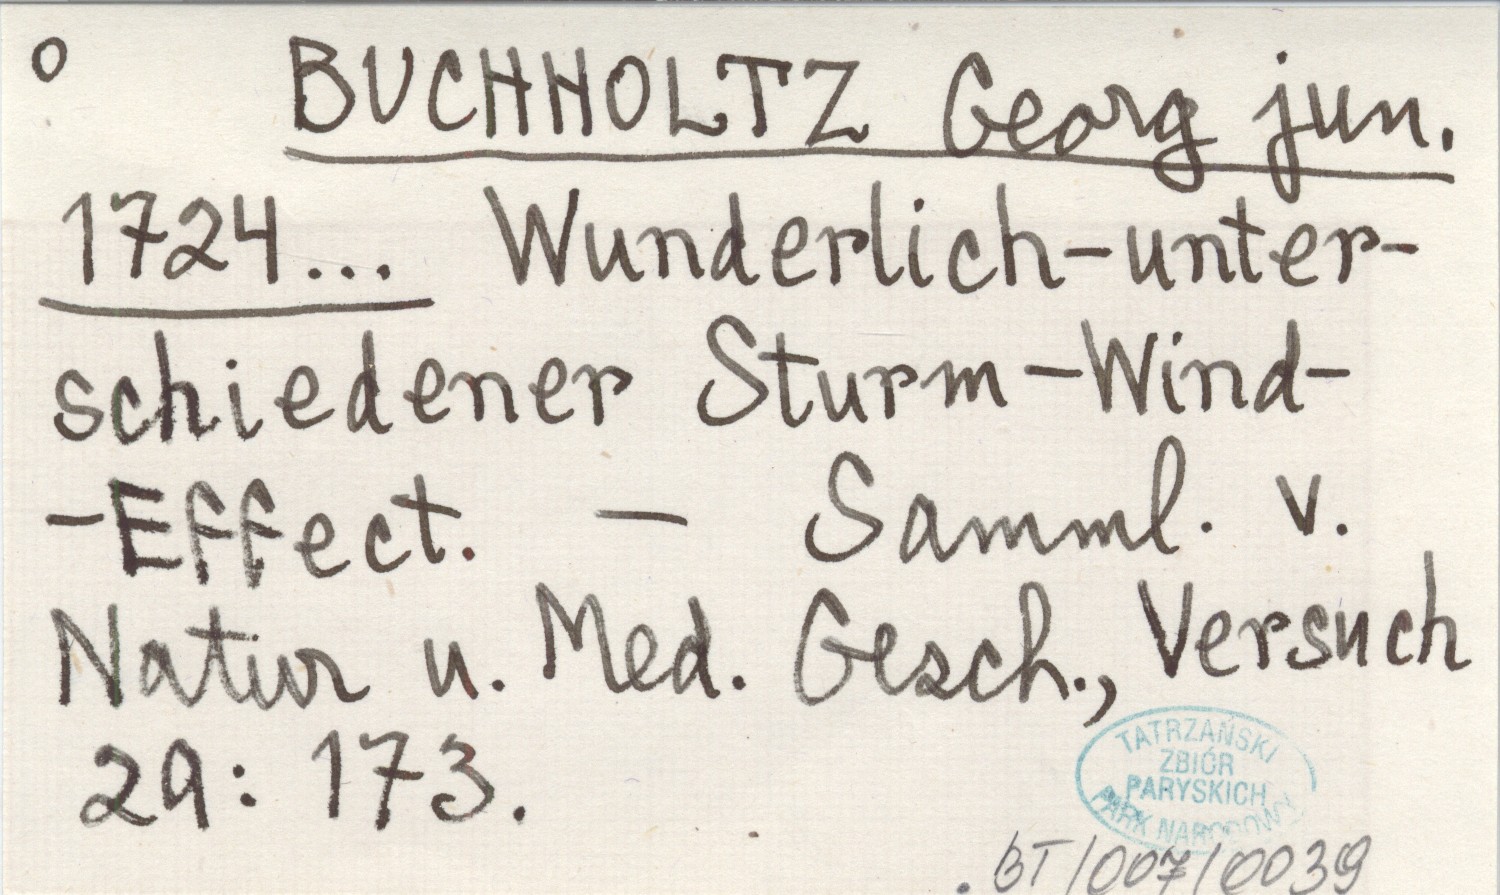 o BUCHHOLTZ Georg jun.
1724... Wunderlich-unter-
schiedener Sturm-Wind-
-Effect. — Samml. v.
Natur u. Med. Gesch., Versuch
29: 173.
TATRZAŃSKI
ZBIÓR
PARYSKICH
PARK NARODOWY
. BT/007/0039